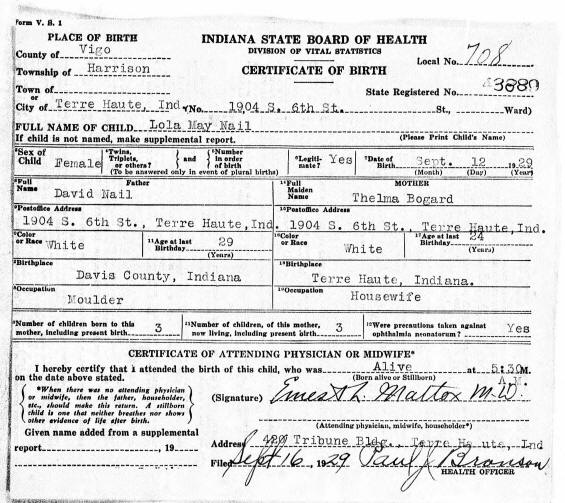 Form V. S. 1
PLACE OF BIRTH
INDIANA STATE BOARD OF HEALTH
County of Vigo
DIVISION OF VITAL STATISTICS
Local No. 708
Township of Harrison
CERTIFICATE OF BIRTH
Town of
State Registered No. 43889
or
City of Terre Haute, Ind. (No. 1904 S. 6th St. St., Ward)
FULL NAME OF CHILD Lola May Nail
If child is not named, make supplemental report. (Please Print Child's Name)
Sex of Child Female Twins, Triplets, or others? } and { Number in order of birth Legiti-mate? Yes Date of Birth Sept. 12 1929
(To be answered only in event of plural births) (Month) (Day) (Year)
Full Name Father
David Nail
Full Maiden Name MOTHER
Thelma Bogard
Postoffice Address
1904 S. 6th St., Terre Haute, Ind.
Postoffice Address
1904 S. 6th St., Terre Haute, Ind.
Color or Race White 11Age at last Birthday 29
(Years)
Color or Race White 17Age at last Birthday 24
(Years)
Birthplace
Davis County, Indiana
Birthplace
Terre Haute, Indiana.
Occupation
Moulder
Occupation
Housewife
Number of children born to this mother, including present birth 3
Number of children, of this mother, now living, including present birth. 3
Were precautions taken against ophthalmia neonatorum? Yes
CERTIFICATE OF ATTENDING PHYSICIAN OR MIDWIFE*
I hereby certify that I attended the birth of this child, who was Alive at 5:30 M.
on the date above stated. (Born alive or Stillborn) A.M.
*When there was no attending physician
or midwife, then the father, householder,
etc., should make this return. A stillborn
child is one that neither breathes nor shows
other evidence of life after birth.
(Signature) Ernest L. Mattox M.D.
(Attending physician, midwife, householder*)
Given name added from a supplemental
report , 19
Address 420 Tribune Bldg., Terre Haute, Ind
Filed Sept 16, 1929 Paul J Bronson
HEALTH OFFICER